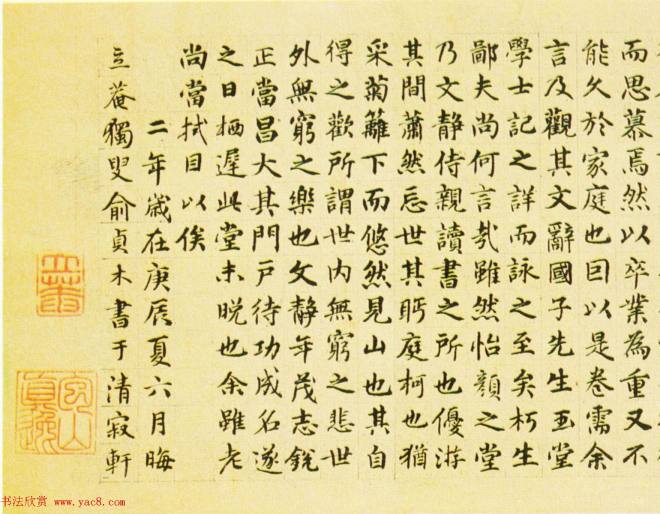 而思慕焉然以卒業為重又不
能久於家庭也囙以是卷需余
言及觀其文辭國子先生玉堂
學士記之詳而詠之至矣朽生
鄙夫尚何言㢤雖然怡顏之堂
乃文静侍親讀書之所也優游
其間蕭然忘世其眄庭柯也猶
采菊籬下而悠然見山也其自
得之歡所謂世内無窮之悲世
外無窮之樂也文静年茂志銳
正當昌大其門戸待功成名遂
之日栖遲此堂未晚也余雖老
尚當拭目以俟
二年歲在庚辰夏六月晦
立菴獨叟俞貞木書于清寂軒
立菴
书法欣赏 www.yac8.com